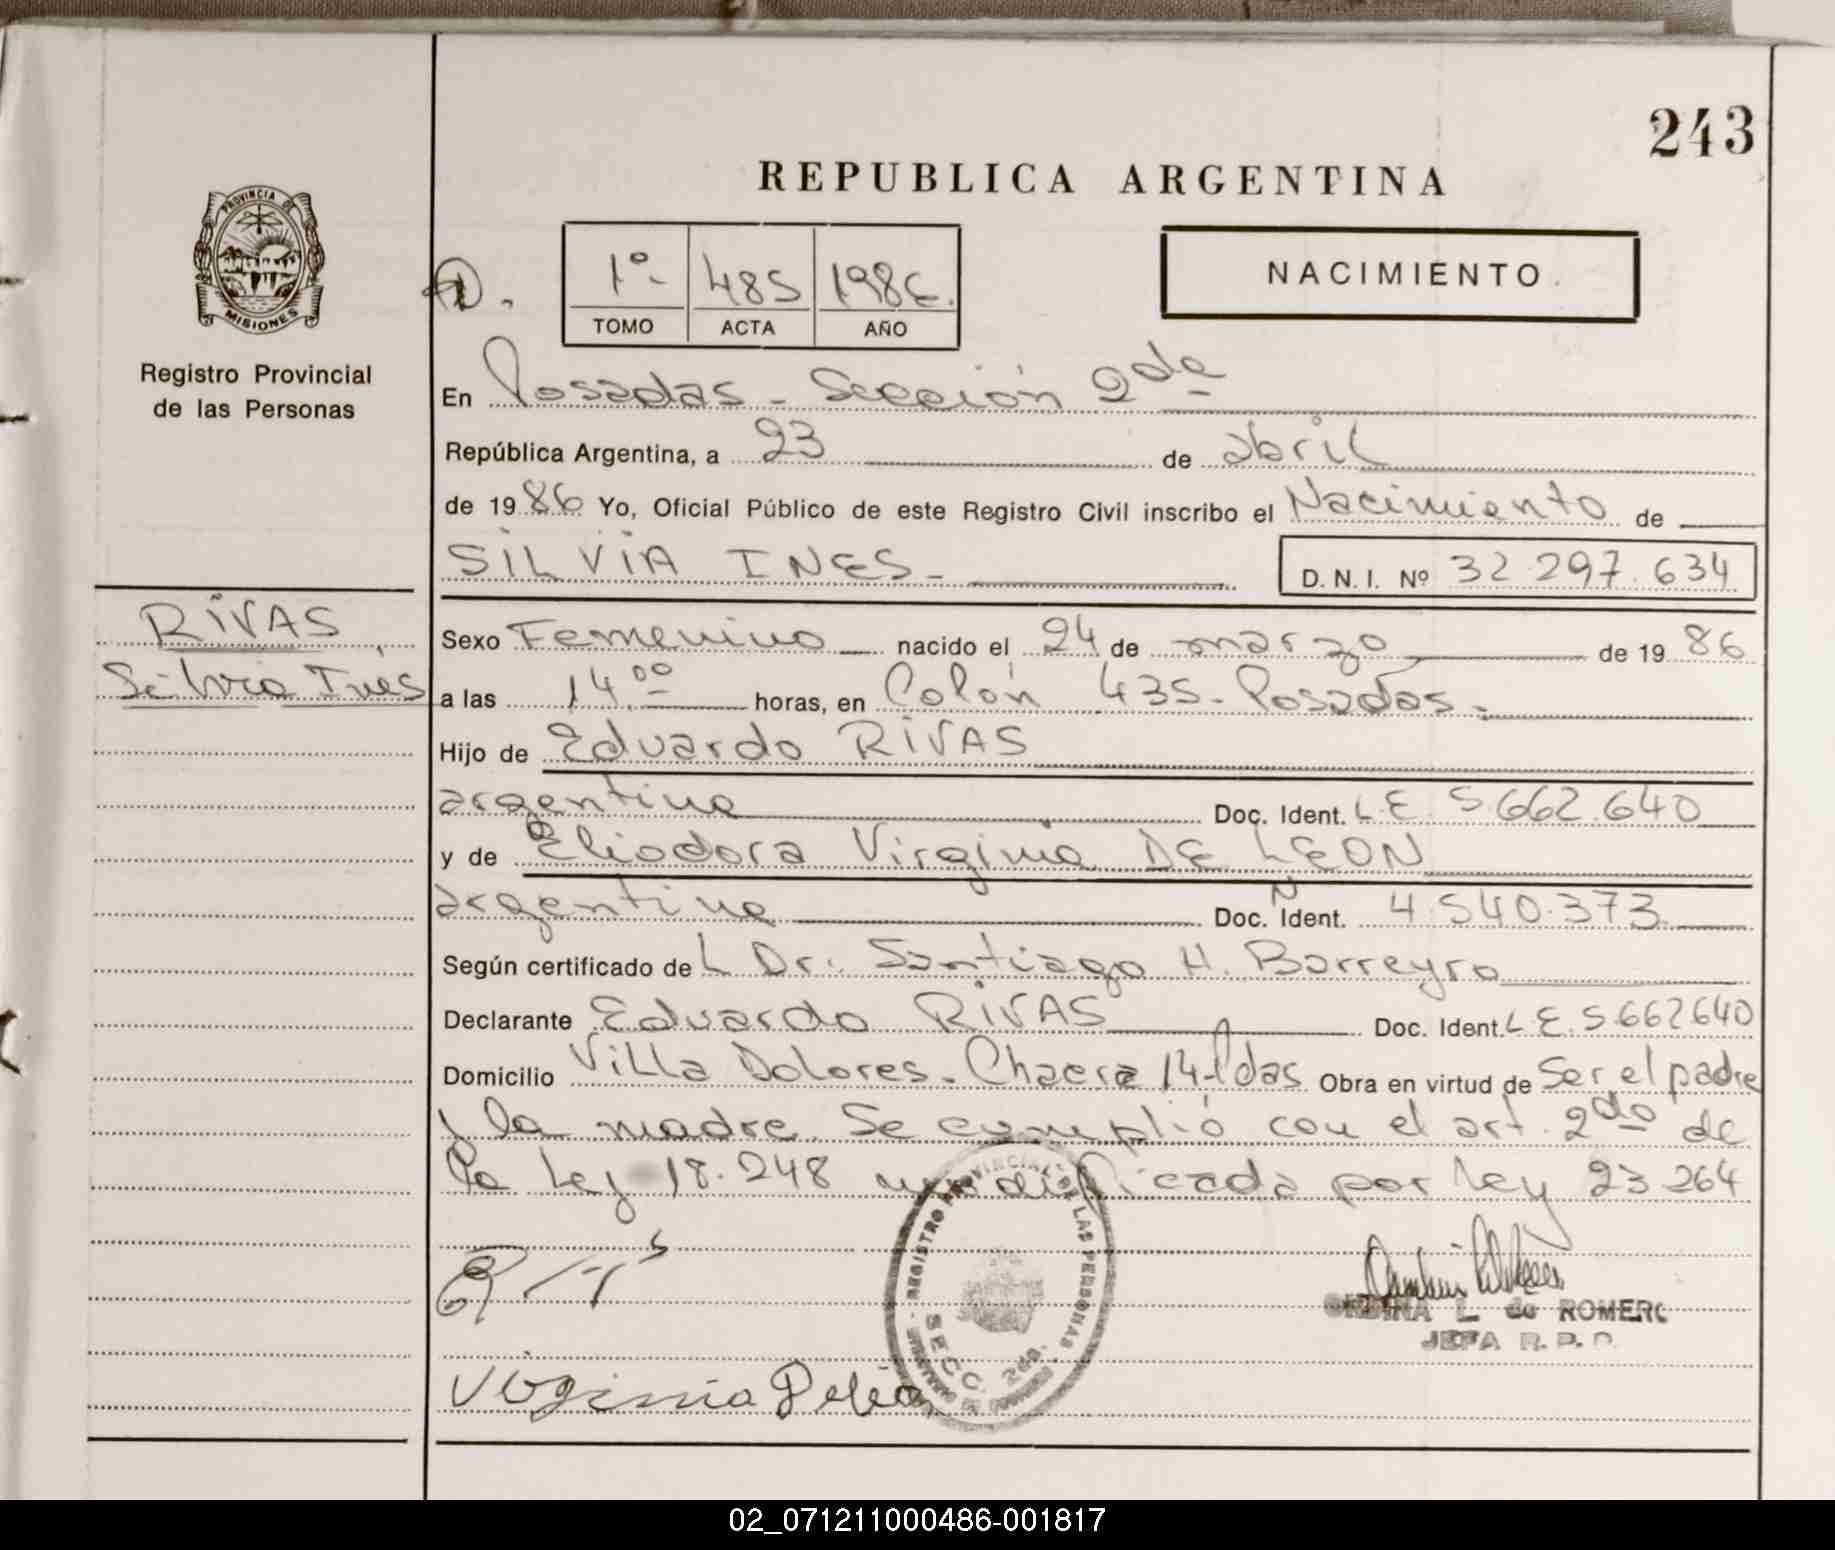 243
REPUBLICA ARGENTINA
PROVINCIA DE
MISIONES
Registro Provincial
de las Personas
1º- 485 1986.
TOMO ACTA AÑO
NACIMIENTO
En Posadas - Sección 2da
República Argentina, a 23 de abril
de 1986 Yo, Oficial Público de este Registro Civil inscribo el Nacimiento de
SILVIA INES - D. N. I. Nº 32.297.634
RIVAS
Silvia Inés
Sexo Femenino nacido el 24 de marzo de 1986
a las 14.00 horas, en Colón 435 - Posadas.
Hijo de Eduardo RIVAS
argentino Doc. Ident. L.E. 5.662.640
y de Eliodora Virginia DE LEON
argentina Doc. Ident. N 4.540.373.
Según certificado de L Dr. Santiago H. Barreyro
Declarante Eduardo RIVAS Doc. Ident. L.E. 5.662.640
Domicilio Villa Dolores - Chacra 14 - Pdas Obra en virtud de Ser el padre
y la madre. Se cumplió con el art. 2do de
la Ley 18.248 modificada por ley 23.264
REGISTRO PROVINCIAL DE LAS PERSONAS
SECC. 2da.
L. de ROMERO
JEFA R. P. P.
Virginia Deleon
02_071211000486-001817